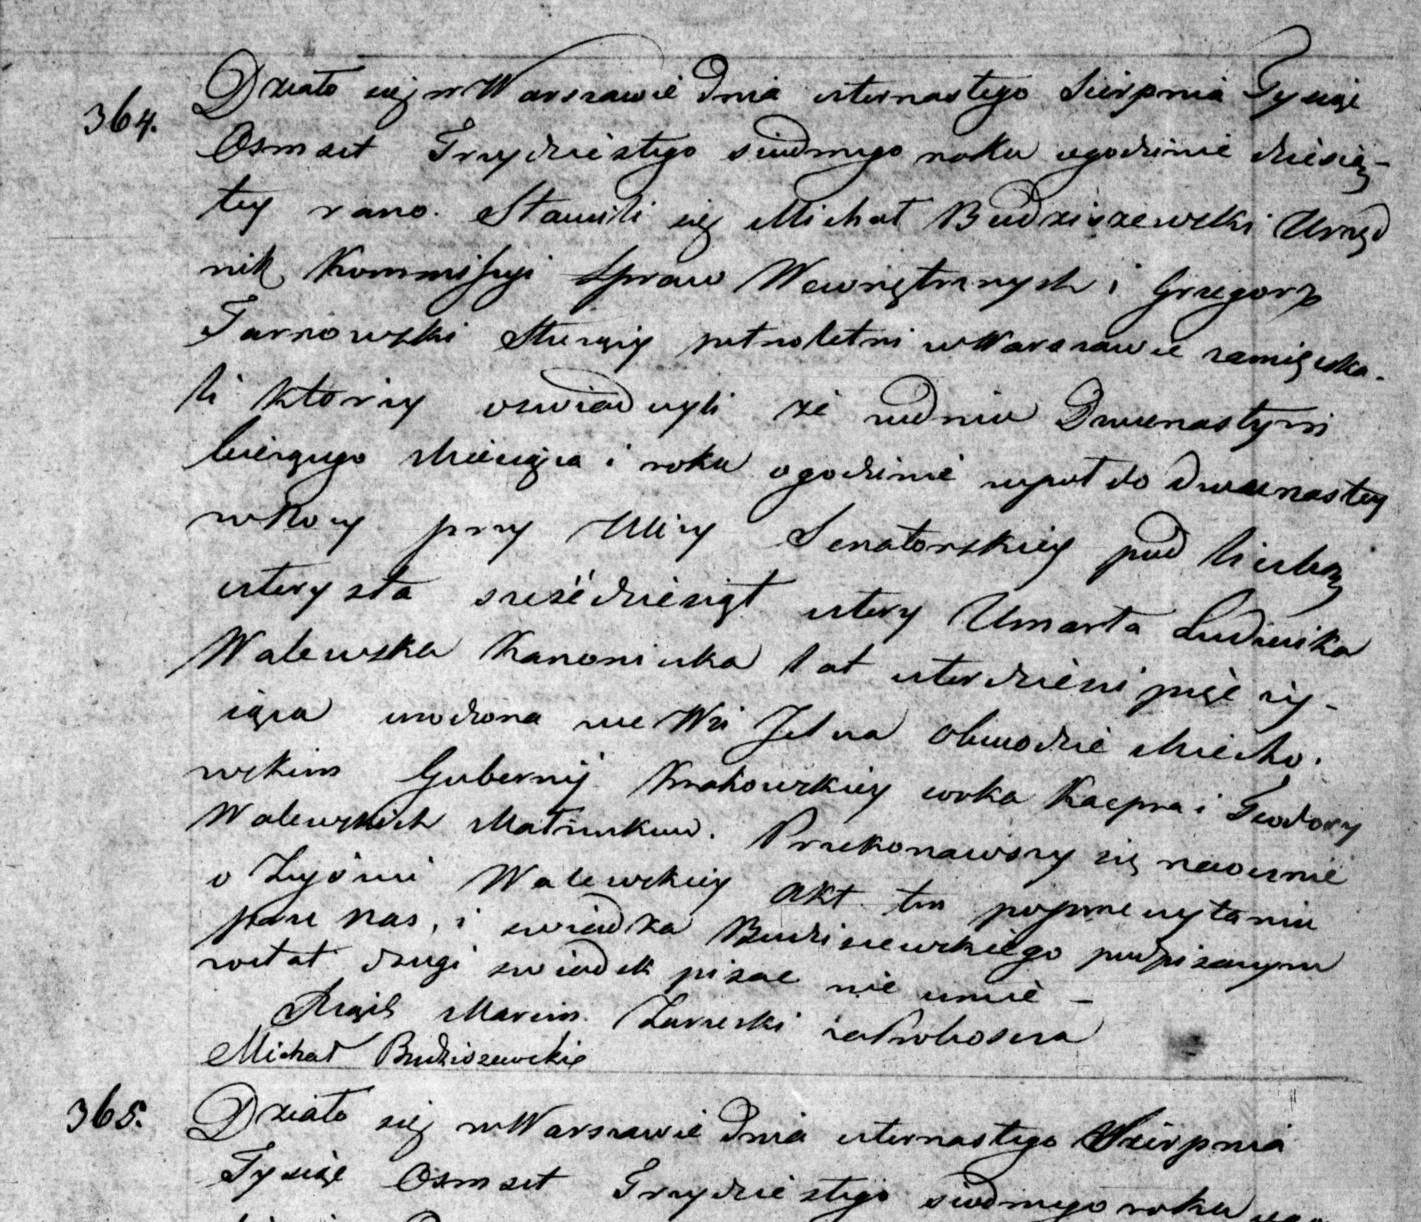 364.
Działo się w Warszawie Dnia czternastego Sierpnia Tysiąc
Osmset Trzydziestego siódmego roku o godzinie dziesią-
tey rano. Stawili się Michał Budziszewski Urzęd
nik Kommissyi Spraw Wewnętrznych i Grzegorz
Tarnowski Służący pełnoletni w Warszawie zamięszka.
li którzy oświadczyli że w dniu Dwunastym
bieżącego Miesiąca i roku o godzinie wpół do dwunastey
w Nocy przy Ulicy Senatorskiey pod liczbą
cztery sta sześćdziesiąt cztery Umarła Ludwika
Walewska Kanoniczka lat czterdzieści pięć ży-
iąca urodzona we Wsi Jelna Obwodzie Miecho.
wskim Gubernij Krakowskiey corka Kacpra i Teodory
Walewskich Małżonkow. Przekonawszy się naocznie
o Zejściu Walewskiey Akt ten po przeczytaniu
przez nas, i swiadka Budziszewskiego podpisanym
został drugi swiadek pisac nie umie –
Xiądz Marcin Zarzecki za Proboszcza
Michał Budziszewski
365.
Działo się w Warszawie Dnia czternastego Sierpnia
Tysiąc Osmset Trzydziestego siódmego roku